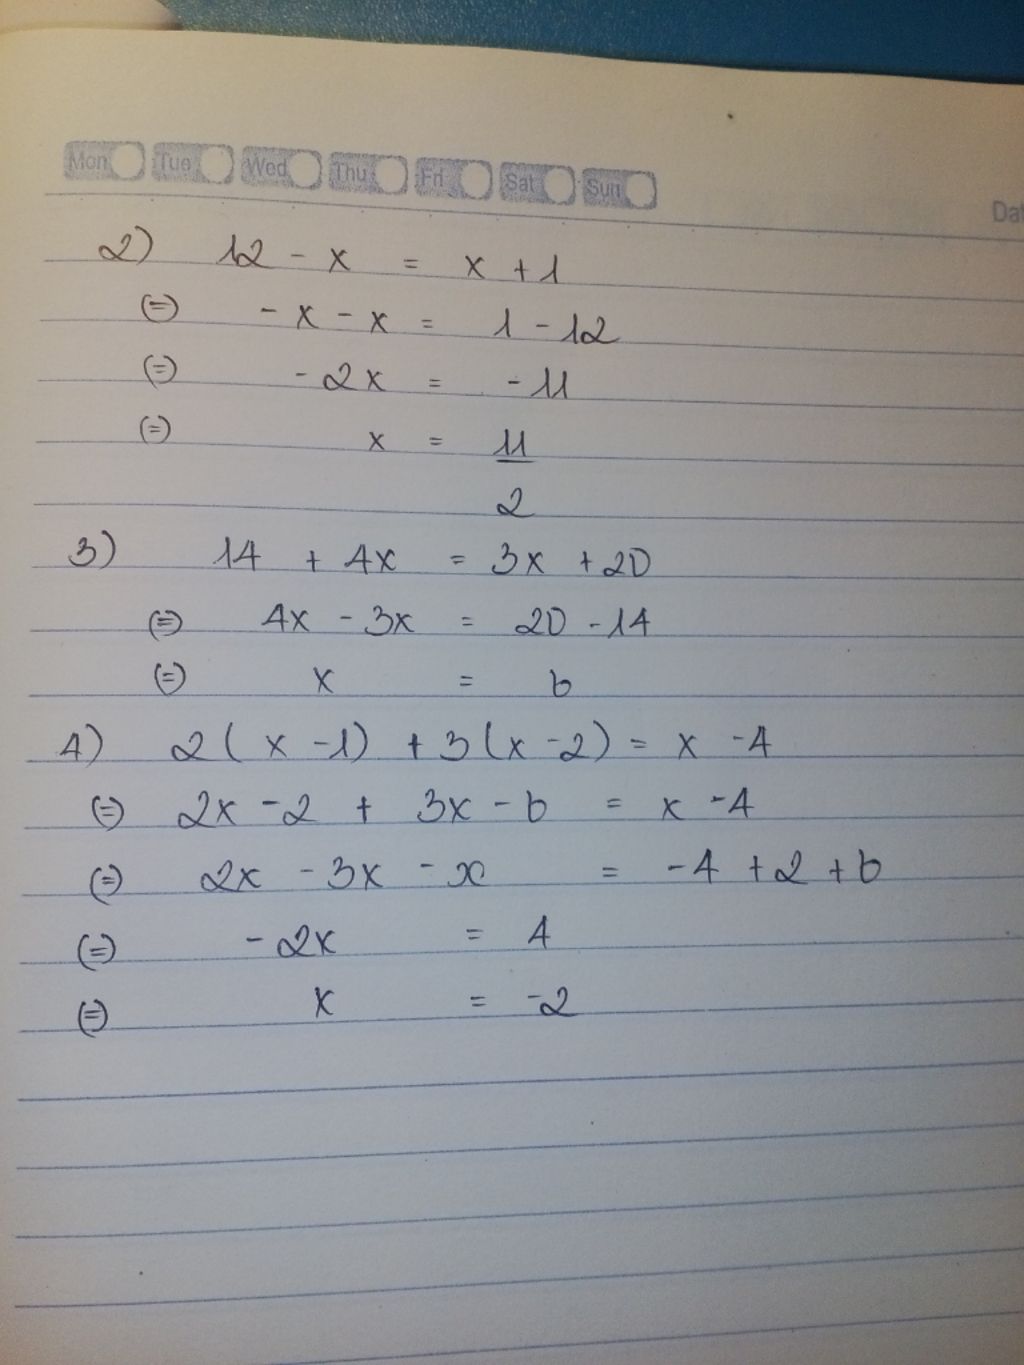 Mon Tue Wed Thu Fri Sat Sun
Dat
2) 12 - x = x + 1
(=) - x - x = 1 - 12
(=) - 2x = - 11
(=) x = 11
2
3) 14 + 4x = 3x + 20
(=) 4x - 3x = 20 - 14
(=) x = 6
4) 2 ( x - 1) + 3 (x - 2) = x - 4
(=) 2x - 2 + 3x - 6 = x - 4
(=) 2x - 3x - x = - 4 + 2 + 6
(=) - 2x = 4
(=) x = -2